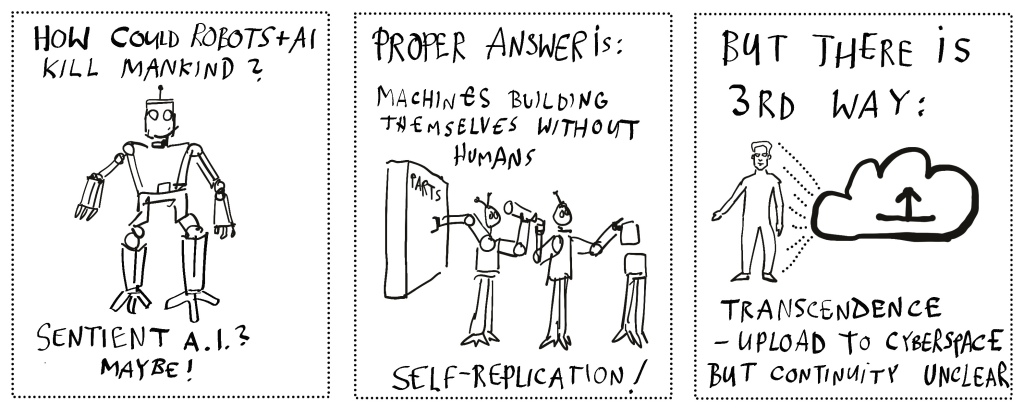 HOW COULD ROBOTS+AI
KILL MANKIND?
SENTIENT A.I.?
MAYBE!
PROPER ANSWER is:
MACHINES BUILDING
THEMSELVES WITHOUT
HUMANS
PARTS
SELF-REPLICATION!
BUT THERE iS
3RD WAY:
TRANSCENDENCE
- UPLOAD TO CYBERSPACE
BUT CONTINUITY UNCLEAR